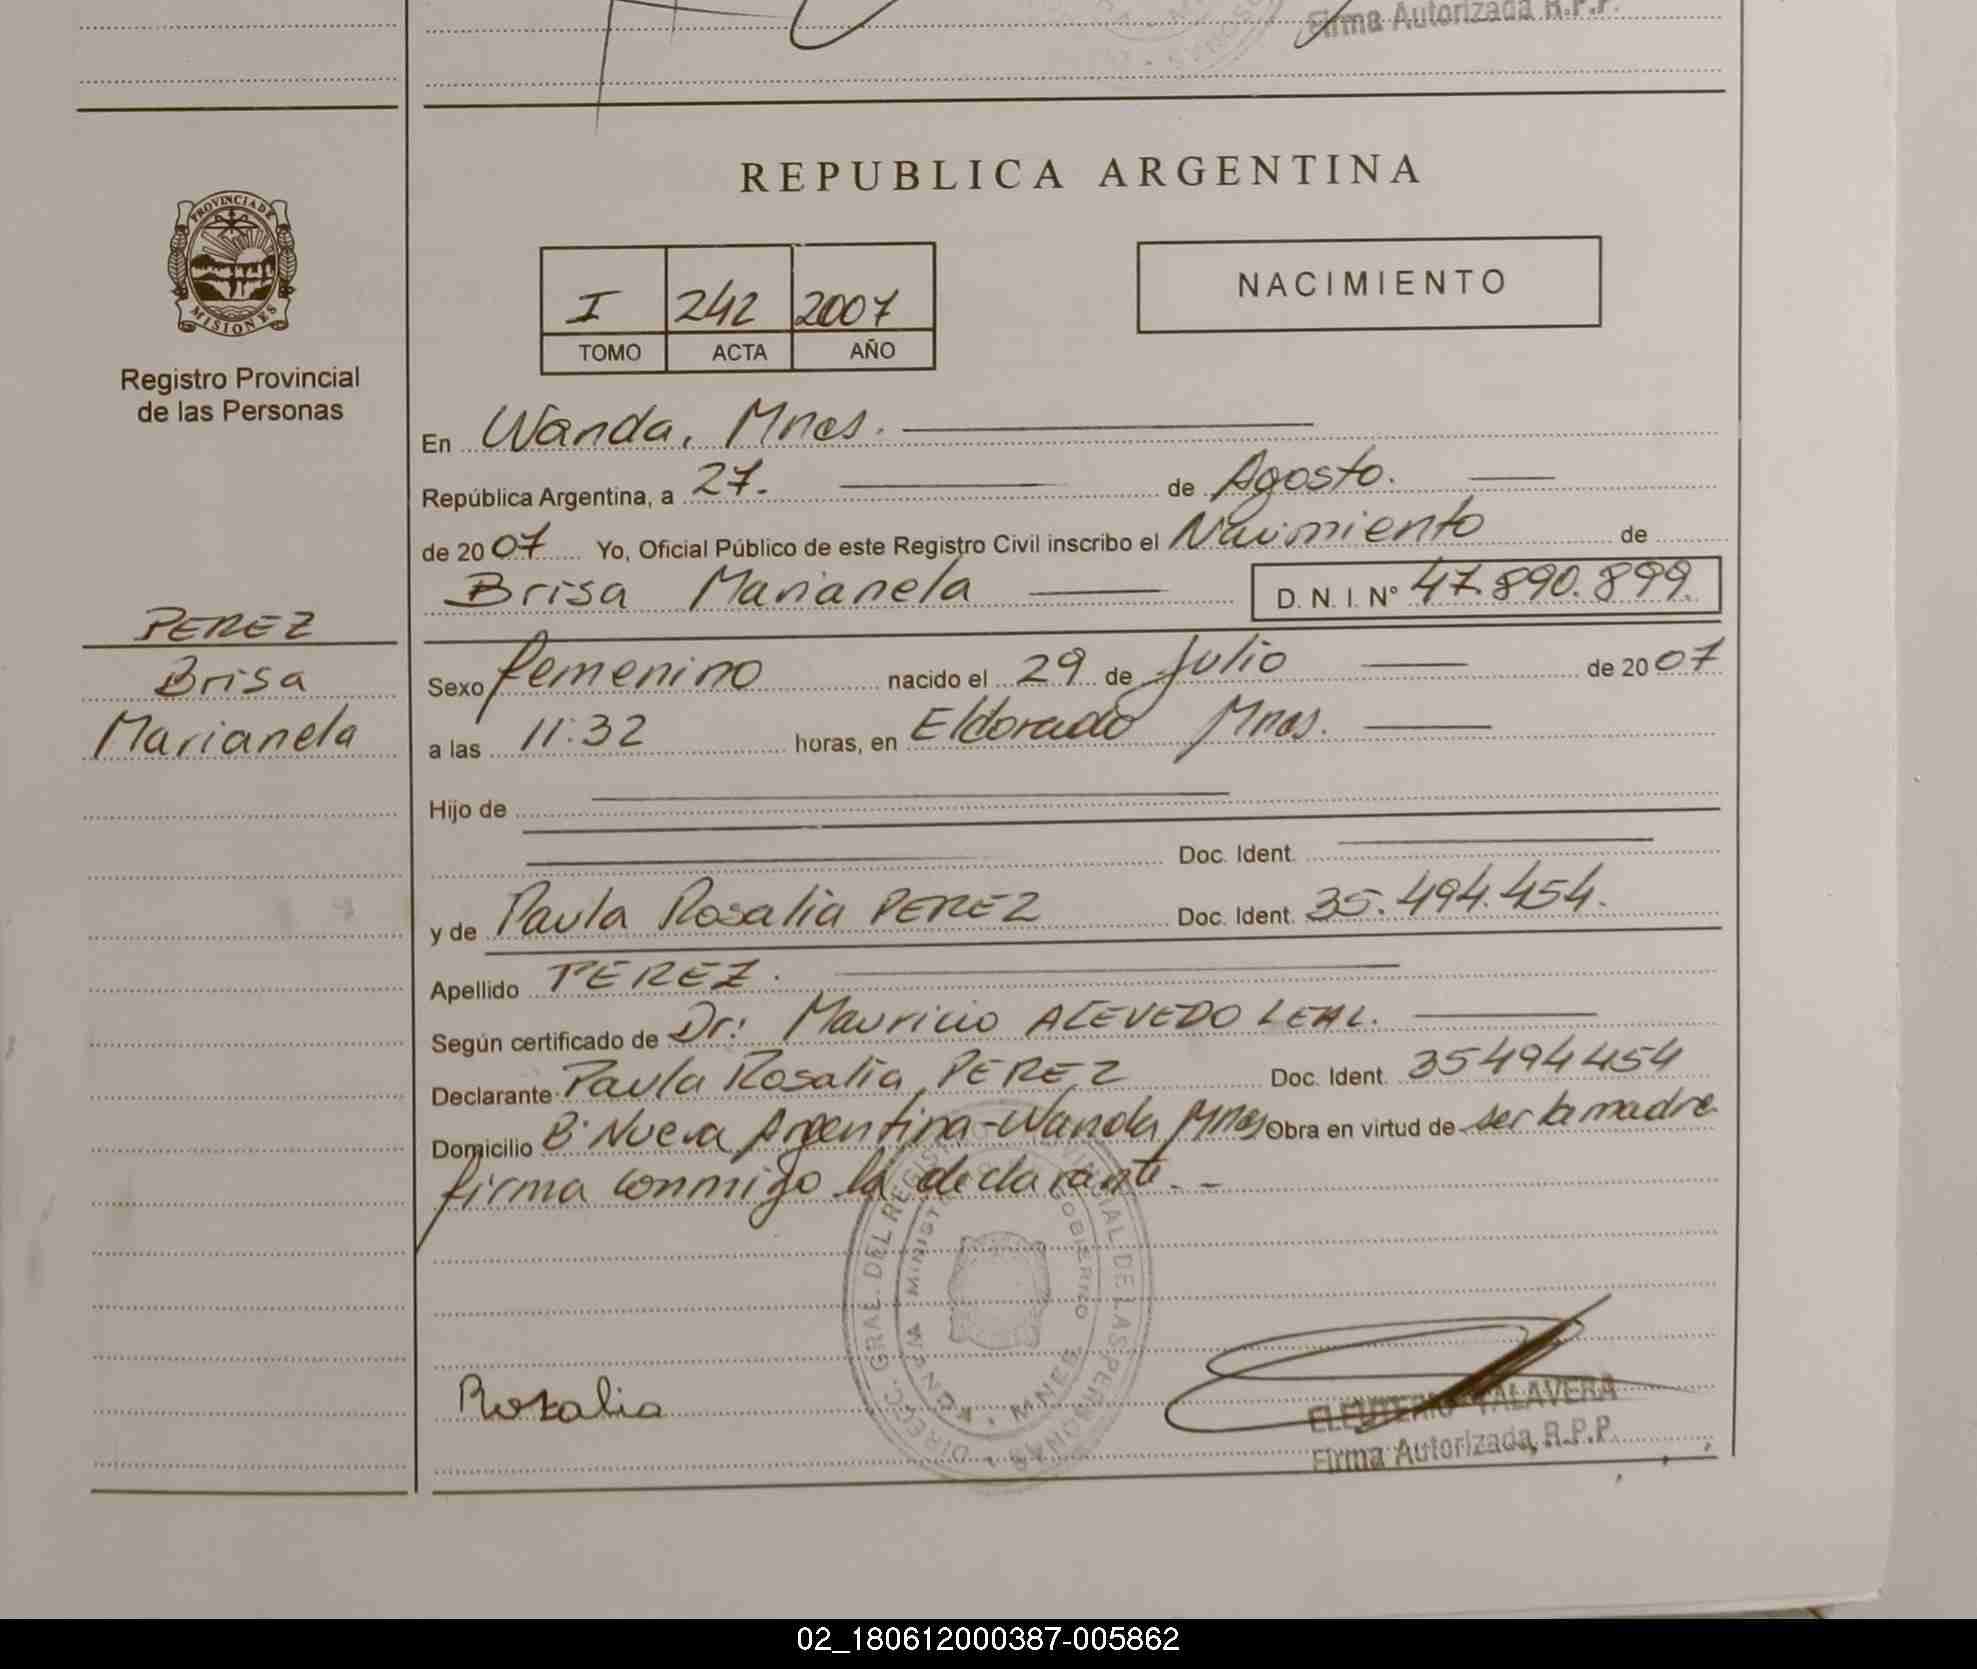 Firma Autorizada R.P.P.
REPUBLICA ARGENTINA
PROVINCIA DE
MISIONES
Registro Provincial
de las Personas
I 242 2007
TOMO ACTA AÑO
NACIMIENTO
En Wanda, Mnes.
República Argentina, a 27. de Agosto.
de 2007 Yo, Oficial Público de este Registro Civil inscribo el Nacimiento de
Brisa Marianela D. N. I. N° 47.890.899.
PEREZ
Brisa
Marianela
Sexo femenino nacido el 29 de Julio de 2007
a las 11:32 horas, en Eldorado Mnes.
Hijo de
Doc. Ident.
y de Paula Rosalia PEREZ Doc. Ident. 35.494.454.
Apellido PEREZ.
Según certificado de Dr: Mauricio ACEVEDO LEAL.
Declarante Paula Rosalia PEREZ Doc. Ident. 35494454
Domicilio B° Nueva Argentina-Wanda Mnes Obra en virtud de ser la madre
firma conmigo la declarante.-
DIRECC. GRAL. DEL REGISTRO PROVINCIAL DE LAS PERSONAS
GOBIERNO
MNES.
Rosalia
ELEUTERIO TALAVERA
Firma Autorizada, R.P.P.
02_180612000387-005862